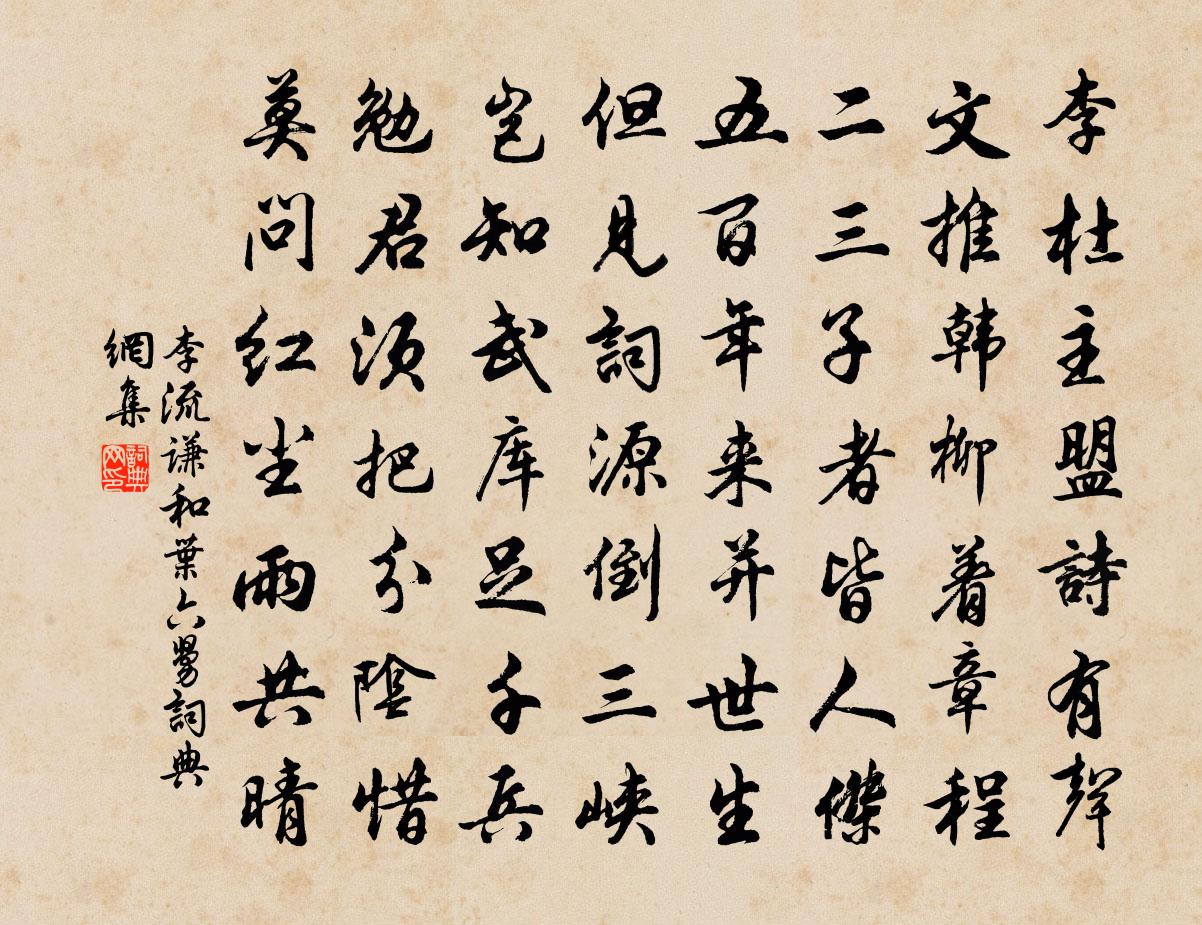 李杜主盟詩有聲
文推韩柳着章程
二三子者皆人傑
五百年来并世生
但見詞源倒三峡
岂知武库足千兵
勉君须把分陰惜
莫问红尘雨共晴
李流谦和葉六舅詞典
網集
詞典
网印